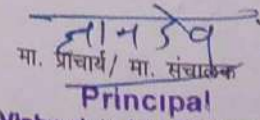 ज्ञानदेव
मा. प्राचार्य/ मा. संचालक
Principal